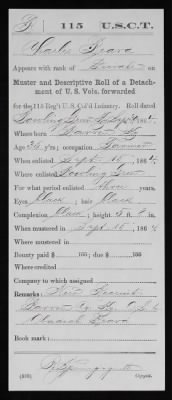 G | 115 | U.S.C.T.
Charles Beard
Appears with rank of Private on
Muster and Descriptive Roll of a Detach-
ment of U. S. Vols. forwarded
for the 115 Reg't U. S. Col'd Infantry. Roll dated
Bowling Green Ky Sept 186
Where born Barren Ky
Age 25 y'rs; occupation Farmer
When enlisted Sept. 15, 1864
Where enlisted Bowling Green
For what period enlisted three years.
Eyes Black; hair Black
Complexion Black; height 5 ft. in.
When mustered in Sept. 15, 1864
Where mustered in
Bounty paid $ 100; due $ 100
Where credited
Company to which assigned
Remarks:
Barren Co Ky
Beard
Book mark:
Copyist.